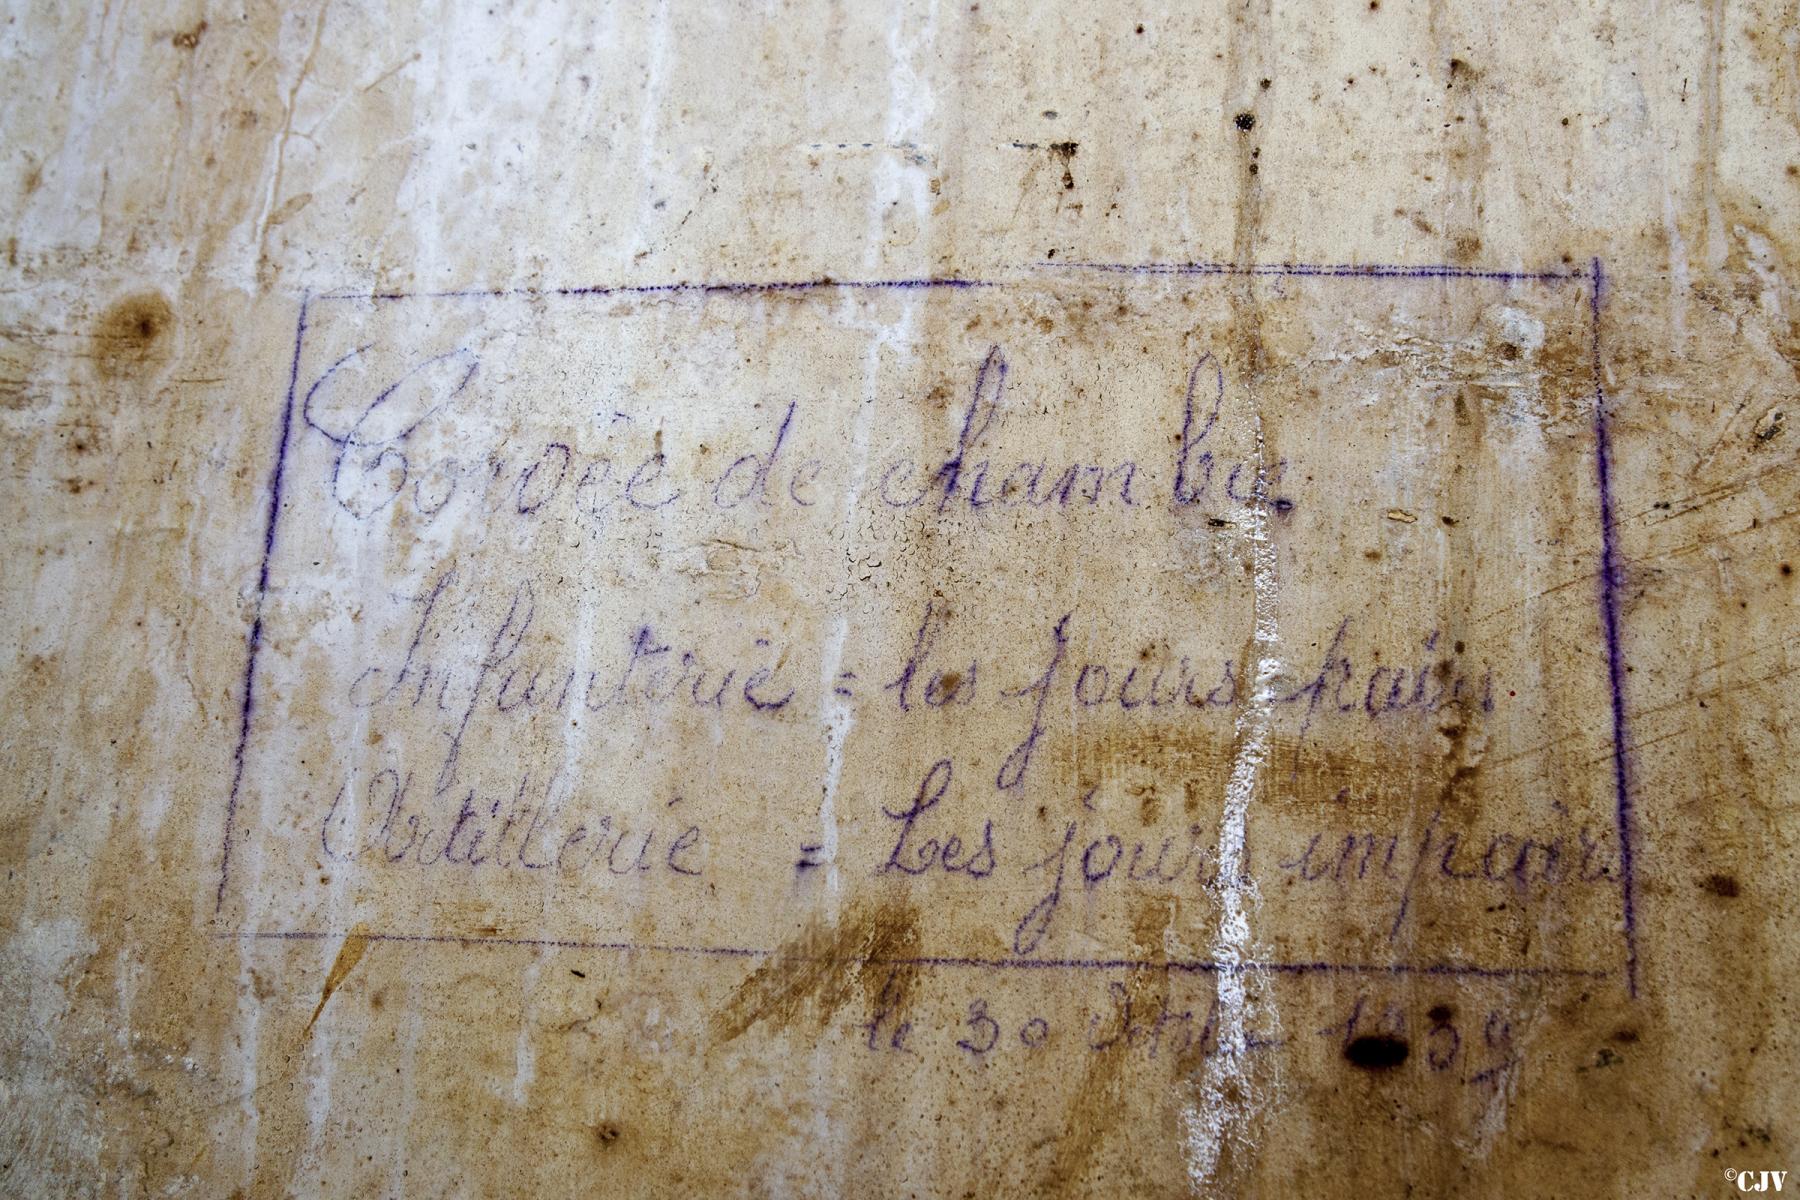 Corvée de chambre
Infanterie = les jours pairs
Artillerie = Les jours impairs
le 30 Octobre 1939
©CJV